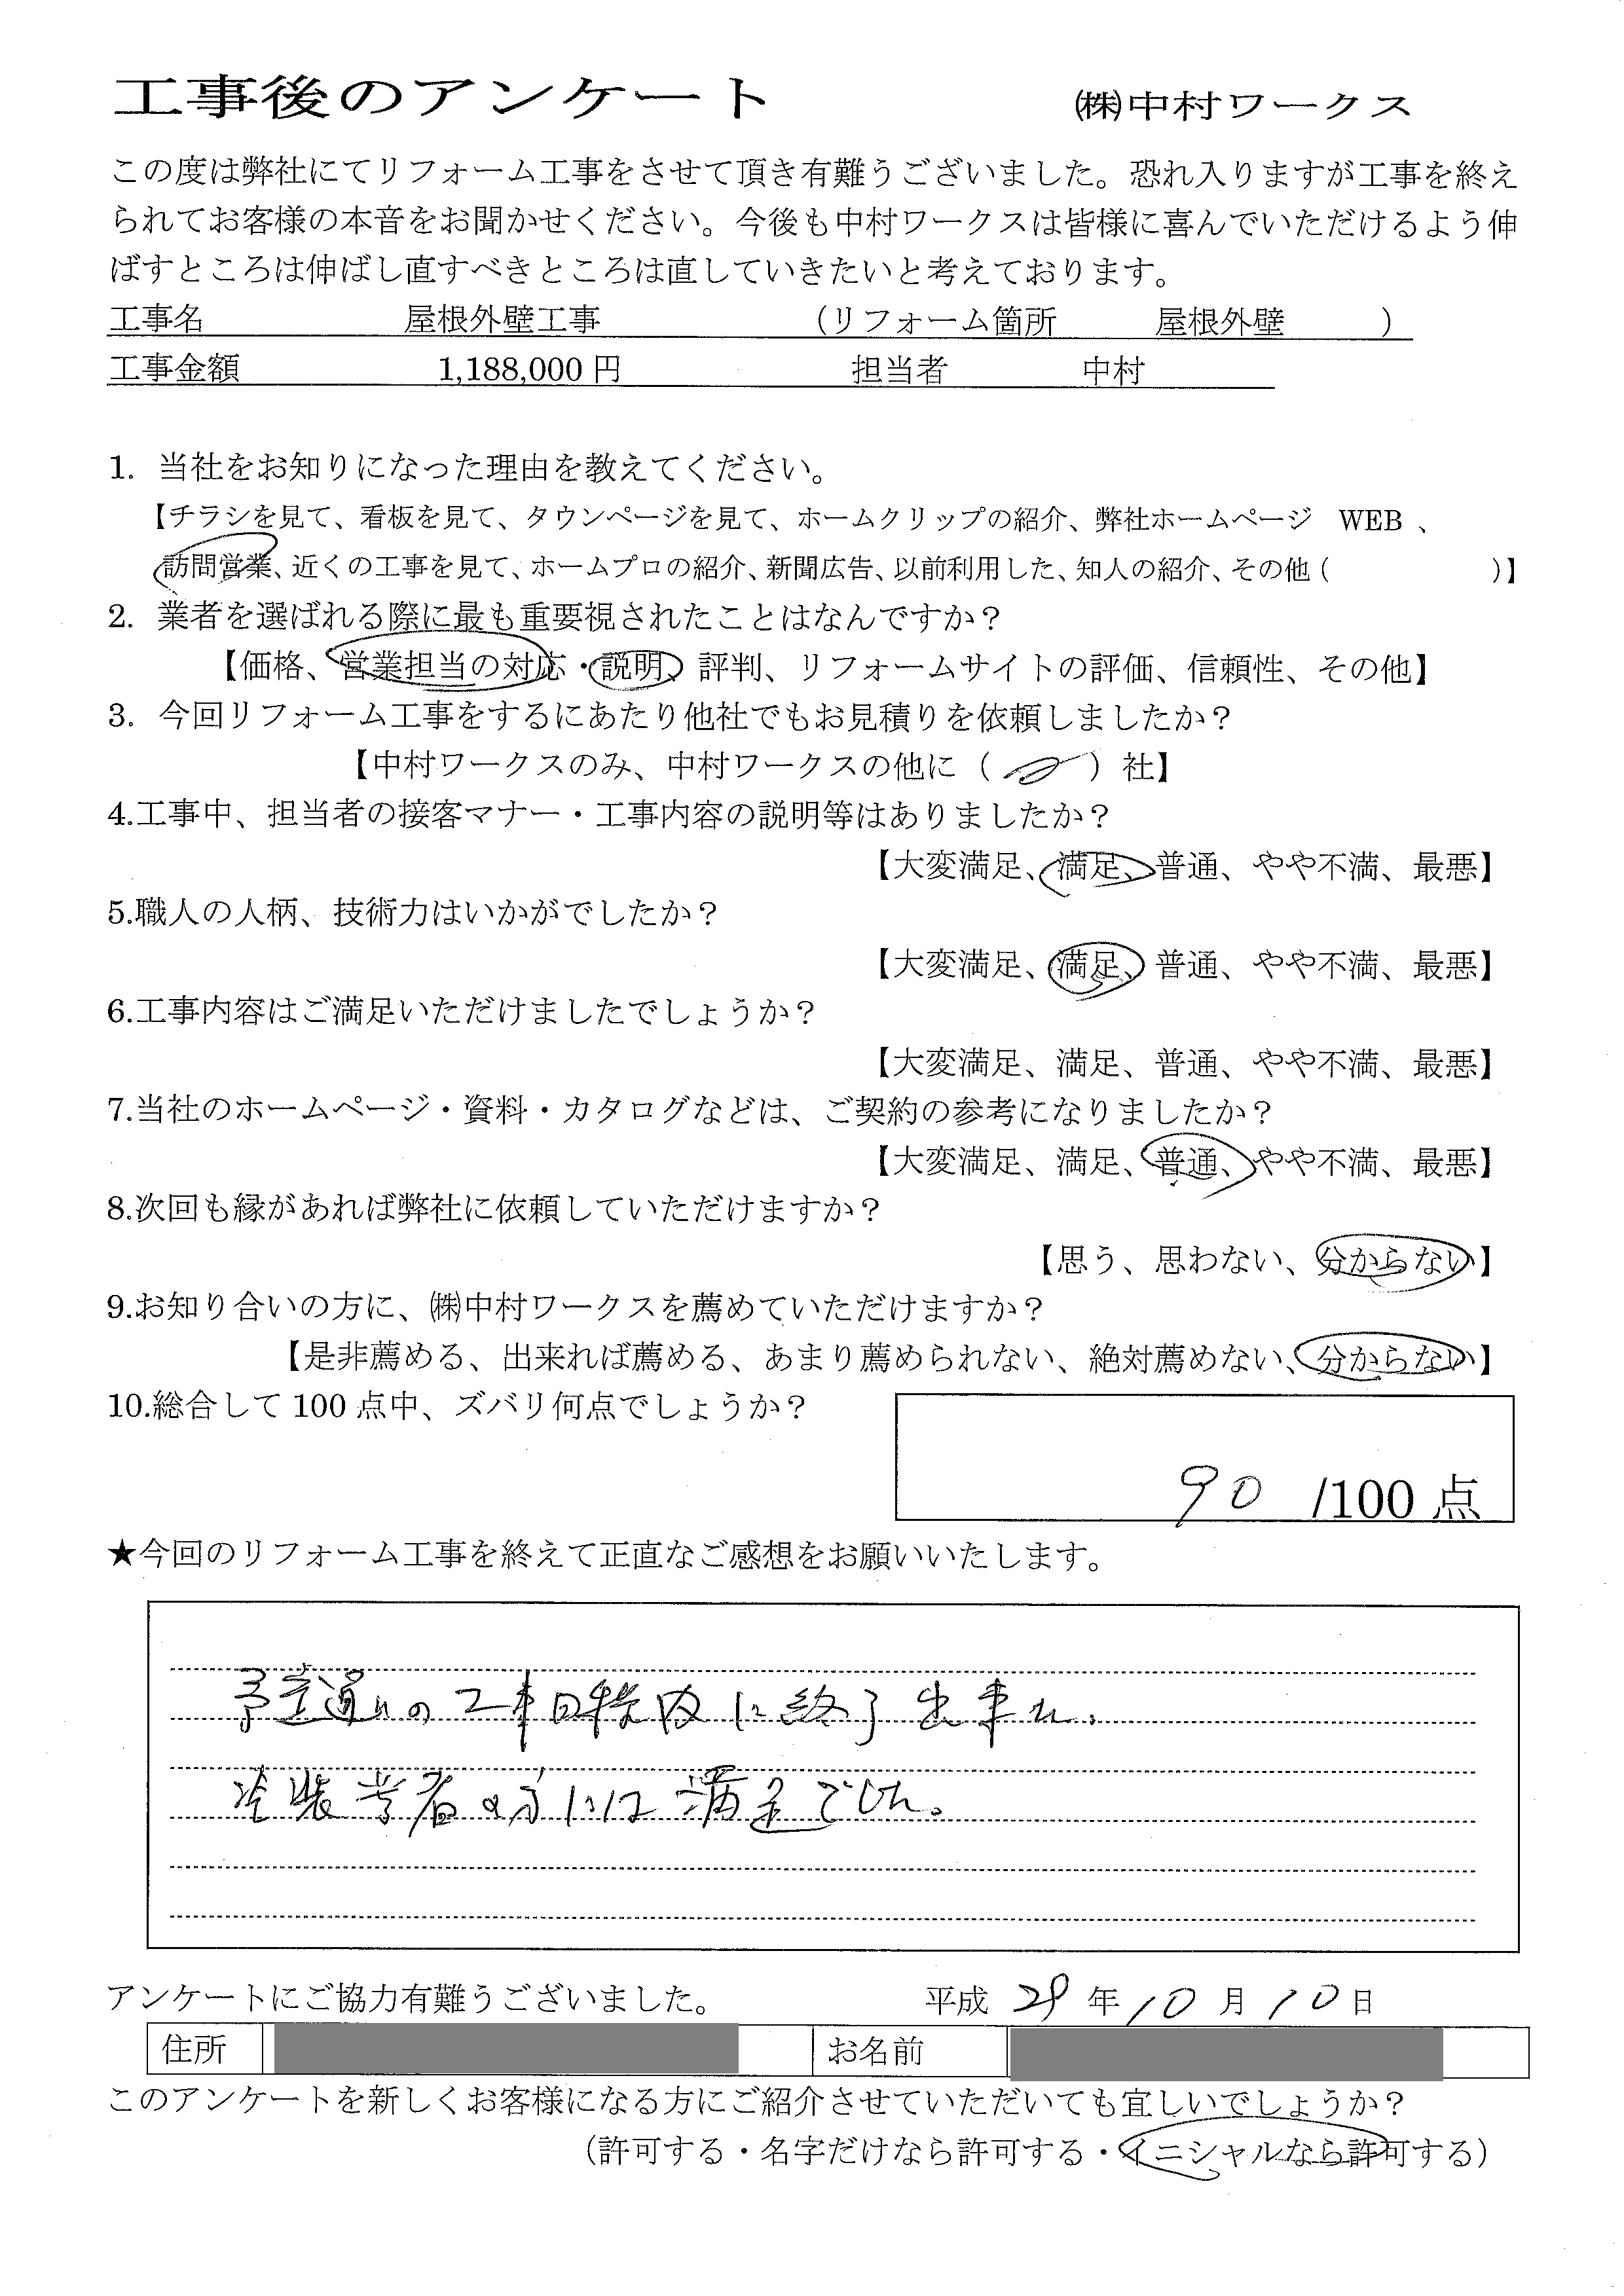 工事後のアンケート　㈱中村ワークス
この度は弊社にてリフォーム工事をさせて頂き有難うございました。恐れ入りますが工事を終え
られてお客様の本音をお聞かせください。今後も中村ワークスは皆様に喜んでいただけるよう伸
ばすところは伸ばし直すべきところは直していきたいと考えております。
工事名　屋根外壁工事　（リフォーム箇所　屋根外壁　）
工事金額　1,188,000 円　担当者　中村
1. 当社をお知りになった理由を教えてください。
【チラシを見て、看板を見て、タウンページを見て、ホームクリップの紹介、弊社ホームページ　WEB 、
訪問営業、近くの工事を見て、ホームプロの紹介、新聞広告、以前利用した、知人の紹介、その他（　）】
2. 業者を選ばれる際に最も重要視されたことはなんですか？
【価格、営業担当の対応・説明、評判、リフォームサイトの評価、信頼性、その他】
3. 今回リフォーム工事をするにあたり他社でもお見積りを依頼しましたか？
【中村ワークスのみ、中村ワークスの他に（　）社】
4.工事中、担当者の接客マナー・工事内容の説明等はありましたか？
【大変満足、満足、普通、やや不満、最悪】
5.職人の人柄、技術力はいかがでしたか？
【大変満足、満足、普通、やや不満、最悪】
6.工事内容はご満足いただけましたでしょうか？
【大変満足、満足、普通、やや不満、最悪】
7.当社のホームページ・資料・カタログなどは、ご契約の参考になりましたか？
【大変満足、満足、普通、やや不満、最悪】
8.次回も縁があれば弊社に依頼していただけますか？
【思う、思わない、分からない】
9.お知り合いの方に、㈱中村ワークスを薦めていただけますか？
【是非薦める、出来れば薦める、あまり薦められない、絶対薦めない、分からない】
10.総合して 100 点中、ズバリ何点でしょうか？
90 /100 点
★今回のリフォーム工事を終えて正直なご感想をお願いいたします。
予定通りの工事日程内に終了出来た。
塗装業者の方には満足でした。
アンケートにご協力有難うございました。　平成 29 年 10 月 10 日
住所　お名前
このアンケートを新しくお客様になる方にご紹介させていただいても宜しいでしょうか？
（許可する・名字だけなら許可する・イニシャルなら許可する）